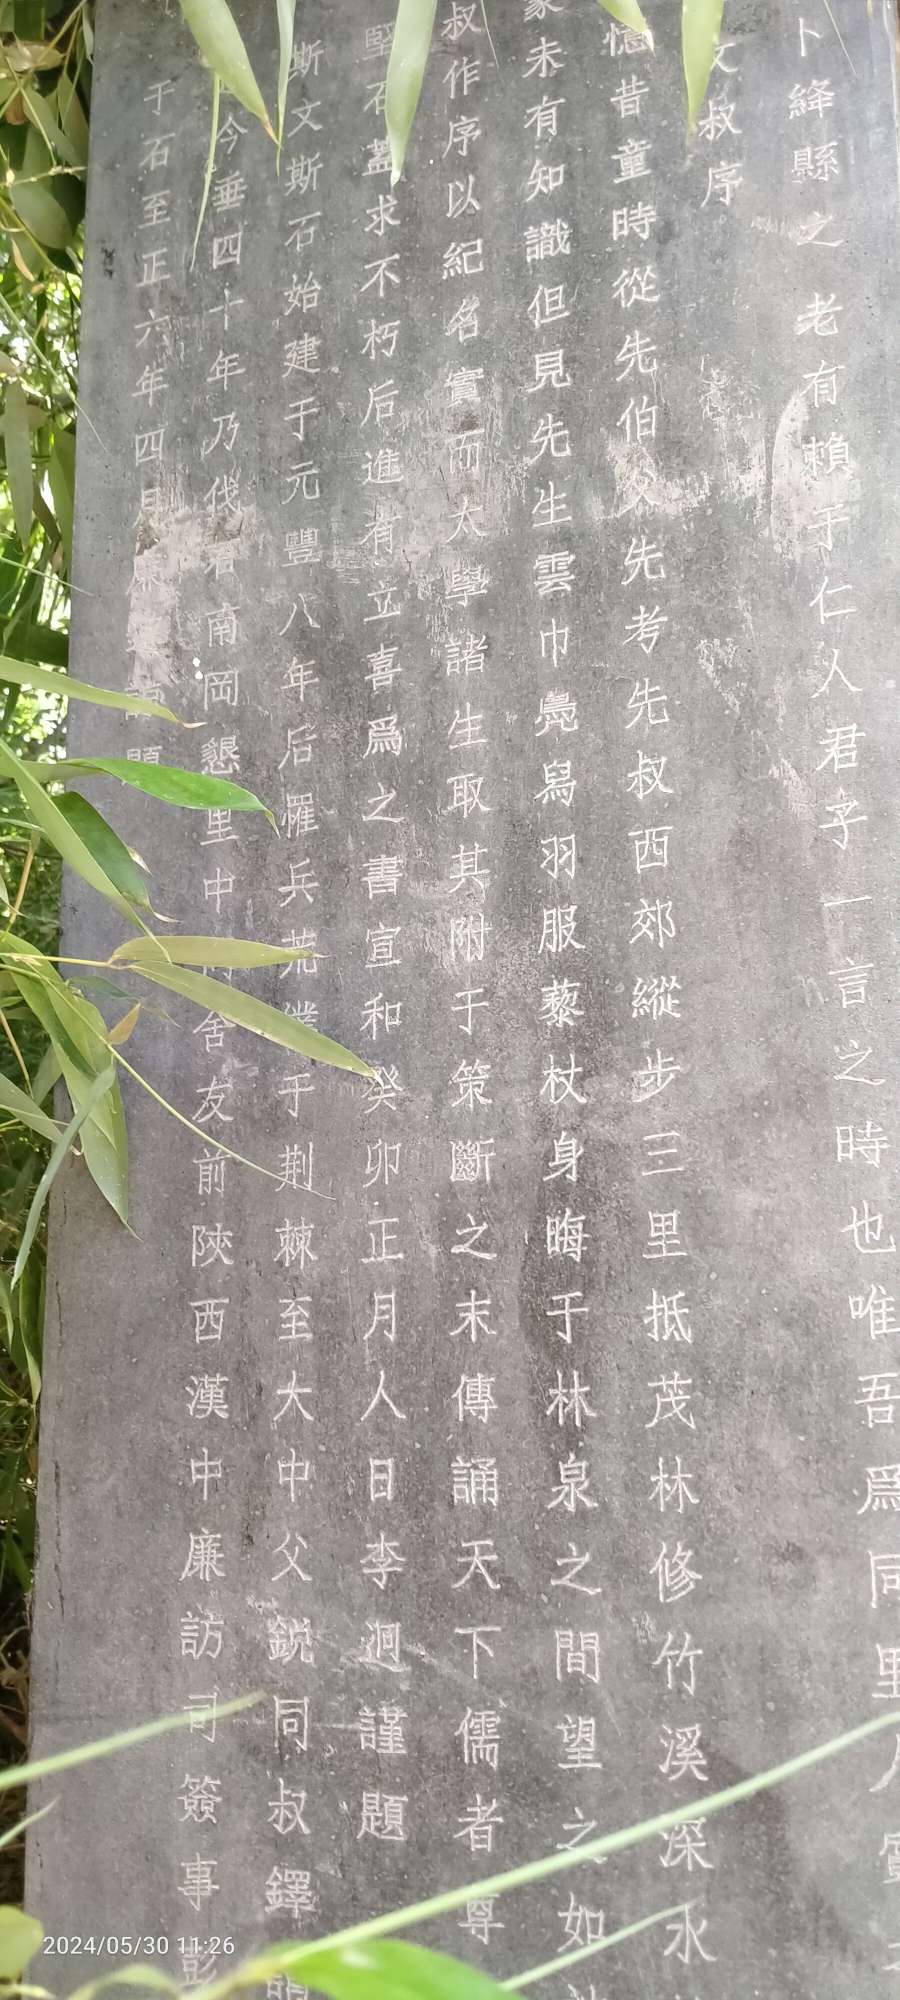 卜絳縣之老有賴于仁人君子一言之時也唯吾爲同里
叔序
憶昔童時從先伯父先考先叔西郊縱步三里抵茂林修竹溪深水
未有知識但見先生雲巾鳧舄羽服藜杖身晦于林泉之間望之如
叔作序以紀名實而大學諸生取其附于策斷之末傳誦天下儒者尊
堅石蓋求不朽后進有立喜爲之書宣和癸卯正月人日李迥謹題
斯文斯石始建于元豐八年后罹兵荒于荆棘至大中父鋭同叔鐸謂
今垂四十年乃伐石南岡懇里中舍友前陝西漢中廉訪司簽事彭
于石至正六年四月題
2024/05/30 11:26